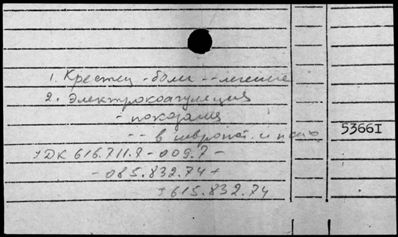 1. Крестец - боли -- лечение
2. Электрокоагуляция
- показания
-- в невропат. и псих
53661
УДК 616.711.9-009.7-
-085.832.74+
+615.832.74